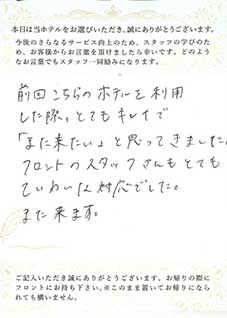 本日は当ホテルをお選びいただき、誠にありがとうございます。
今後のさらなるサービス向上のため、スタッフの学びのため、お客様からお言葉を頂けましたら幸いです。どのようなお言葉でもスタッフ一同励みになります。
前回こちらのホテルを利用
した際、とてもキレイで
「また来たい」と思ってきました。
フロントのスタッフさんもとても
ていねいな対応でした。
また来ます。
ご記入いただき誠にありがとうございます。お帰りの際に
フロントにお持ち下さい。※このまま置いてお帰りになら
れても構いません。